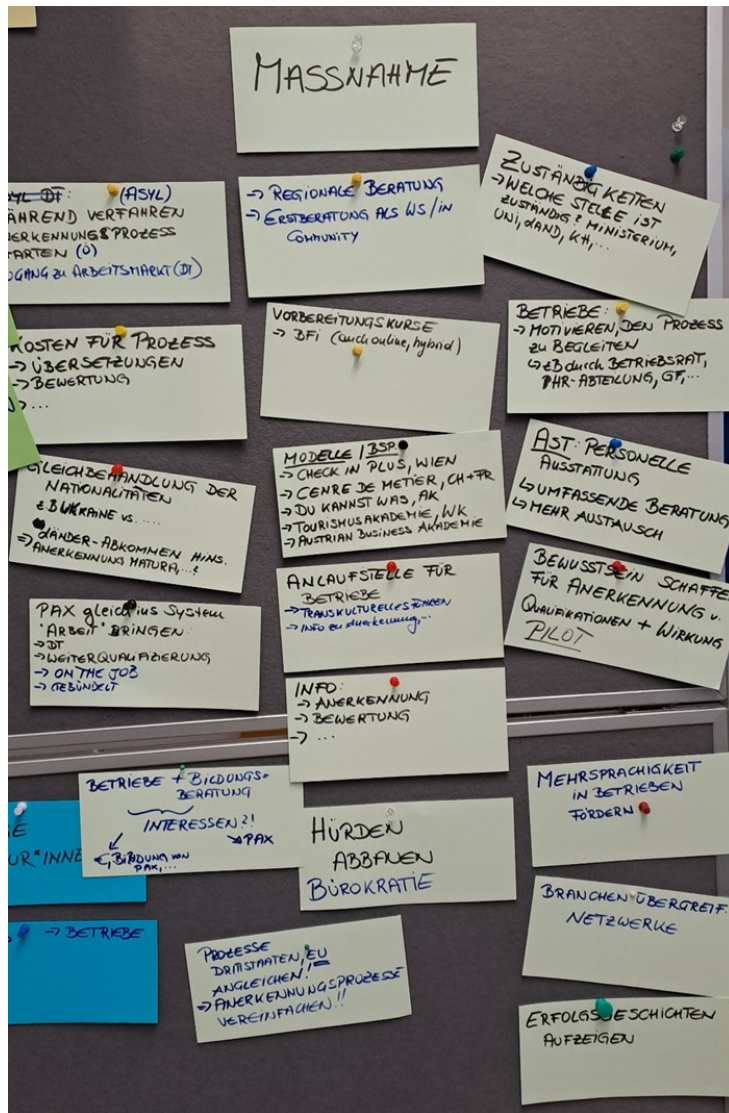 MASSNAHME
(ASYL)
WÄHREND VERFAHREN
ANERKENNUNGSPROZESS
STARTEN (Ö)
ZUGANG ZU ARBEITSMARKT (DT)
→ REGIONALE BERATUNG
→ ERSTBERATUNG ALS WS / IN
COMMUNITY
ZUSTÄNDIGKEITEN
→ WELCHE STELLE IST
ZUSTÄNDIG? MINISTERIUM,
UNI, LAND, KH,...
KOSTEN FÜR PROZESS
→ ÜBERSETZUNGEN
→ BEWERTUNG
→ ...
VORBEREITUNGSKURSE
→ BFi (auch online, hybrid)
BETRIEBE:
→ MOTIVIEREN, DEN PROZESS
ZU BEGLEITEN
↳ zB durch BETRIEBSRAT,
HR-ABTEILUNG, GF,...
GLEICHBEHANDLUNG DER
NATIONALITÄTEN
zB UKRAINE vs. ....
→ LÄNDER-ABKOMMEN HINS.
ANERKENNUNG MATURA,...?
MODELLE / BSP.
→ CHECK IN PLUS, WIEN
→ CENRE DE METIER, CH+FR
→ DU KANNST WAS, AK
→ TOURISMUSAKADEMIE, WK
→ AUSTRIAN BUSINESS AKADEMIE
AST: PERSONELLE
AUSSTATTUNG
↳ UMFASSENDE BERATUNG
↳ MEHR AUSTAUSCH
PAX gleich ins System
"ARBEIT" BRINGEN:
→ DT
→ WEITERQUALIFIZIERUNG
→ ON THE JOB
→ GEBÜNDELT
ANLAUFSTELLE FÜR
BETRIEBE
→ TRANSKULTURELLES FÜHREN
→ INFO zu Anerkennung,..
BEWUSSTSEIN SCHAFFE
FÜR ANERKENNUNG v.
QUALIFIKATIONEN + WIRKUNG
PILOT
INFO:
→ ANERKENNUNG
→ BEWERTUNG
→ ...
BETRIEBE + BILDUNGS-
BERATUNG
INTERESSEN?!
€, BILDUNG VON
PAX,...
PAX
HÜRDEN
ABBAUEN
BÜROKRATIE
MEHRSPRACHIGKEIT
IN BETRIEBEN
FÖRDERN
UR*INNE
→ BETRIEBE
PROZESSE
DRITTSTAATEN, EU
ANGLEICHEN!
→ ANERKENNUNGSPROZESSE
VEREINFACHEN!!
BRANCHENÜBERGREIF.
NETZWERKE
ERFOLGSGESCHICHTEN
AUFZEIGEN